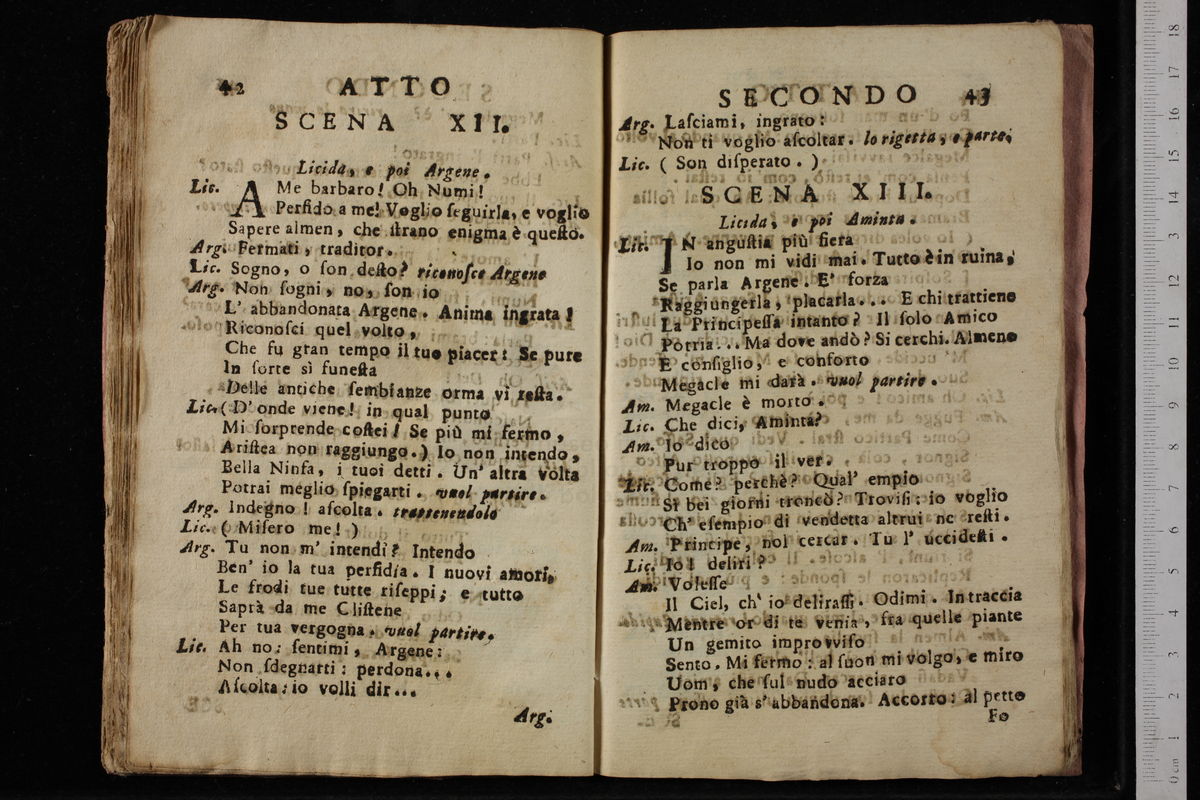 42 ATTO
SCENA XII.
Licida, e poi Argene.
Lic. AMe barbaro! Oh Numi!
Perfido a me! Voglio ſeguirla, e voglio
Sapere almen, che ſtrano enigma è queſto.
Arg. Fermati, traditor.
Lic. Sogno, o ſon deſto? riconoſce Argene
Arg. Non ſogni, no, ſon io
L' abbandonata Argene. Anima ingrata!
Riconoſci quel volto,
Che fu gran tempo il tuo piacer: Se pure
In ſorte sì funeſta
Delle antiche ſembianze orma vi reſta.
Lic. (D' onde viene! in qual punto
Mi ſorprende coſtei! Se più mi fermo,
Ariſtea non raggiungo.) Io non intendo,
Bella Ninfa, i tuoi detti. Un' altra volta
Potrai meglio ſpiegarti. vuol partire.
Arg. Indegno! aſcolta. trattenendolo
Lic. (Miſero me!)
Arg. Tu non m' intendi? Intendo
Ben' io la tua perfidia. I nuovi amori,
Le frodi tue tutte riſeppi; e tutto
Saprà da me Cliſtene
Per tua vergogna. vuol partire.
Lic. Ah no: ſentimi, Argene:
Non ſdegnarti: perdona...
Aſcolta: io volli dir...
Arg.
SECONDO 43
Arg. Laſciami, ingrato:
Non ti voglio aſcoltar. lo rigetta, e parte.
Lic. (Son diſperato.)
SCENA XIII.
Licida, e poi Aminta.
Lic. IN anguſtia più fiera
Io non mi vidi mai. Tutto è in ruina,
Se parla Argene. E' forza
Raggiungerla, placarla... E chi trattiene
La Principeſſa intanto? Il ſolo Amico
Potria... Ma dove andò? Si cerchi. Almeno
E conſiglio, e conforto
Megacle mi darà. vuol partire.
Am. Megacle è morto.
Lic. Che dici, Aminta?
Am. Io dico
Pur troppo il ver.
Lic. Come? perchè? Qual' empio
Sì bei giorni troncò? Troviſi: io voglio
Ch' eſempio di vendetta altrui ne reſti.
Am. Principe, nol cercar. Tu l' uccideſti.
Lic. Io! deliri?
Am. Voleſſe
Il Ciel, ch' io deliraſſi. Odimi. In traccia
Mentre or di te venia, fra quelle piante
Un gemito improvviſo
Sento. Mi fermo: al ſuon mi volgo, e miro
Uom, che ſul nudo acciaro
Prono già s' abbandona. Accorro: al petto
Fo